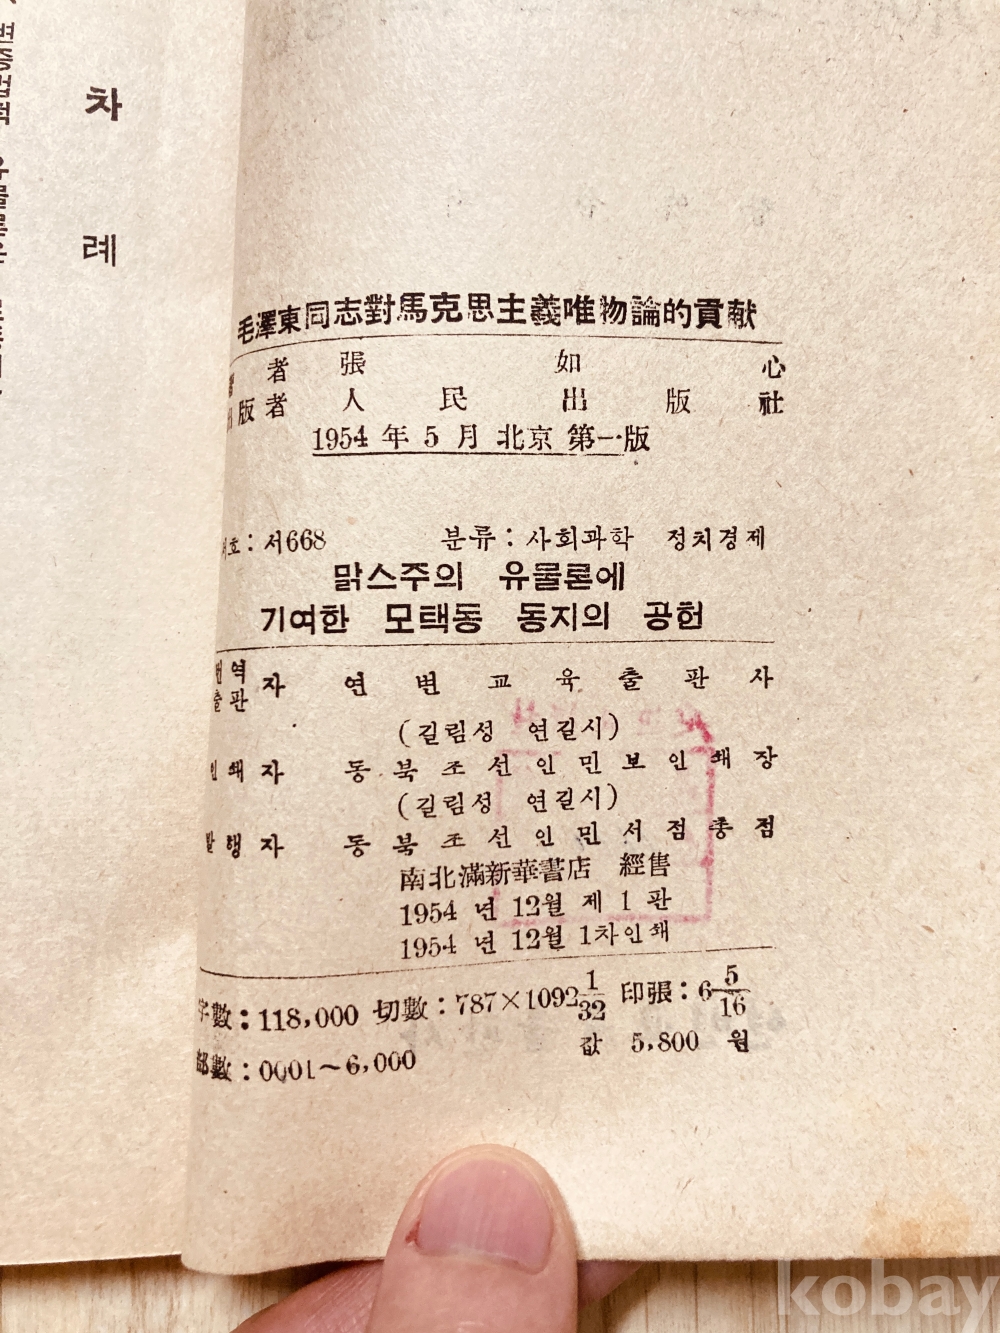 차 례
毛澤東同志對馬克思主義唯物論的貢献
著者 張如心
出版者 人民出版社
1954年5月北京第一版
서호: 서668 분류: 사회과학 정치경제
맑스주의 유물론에
기여한 모택동 동지의 공헌
번역 출판 자 연변교육출판사
(길림성 연길시)
인쇄자 동북조선인민보인쇄장
(길림성 연길시)
발행자 동북조선인민서점총점
南北滿新華書店 經售
1954 년 12월 제 1 판
1954 년 12월 1차인쇄
字數: 118,000 切數: 787×1092 1/32 印張: 6 5/16
部數: 0001~6,000 값 5,800 원
kobay